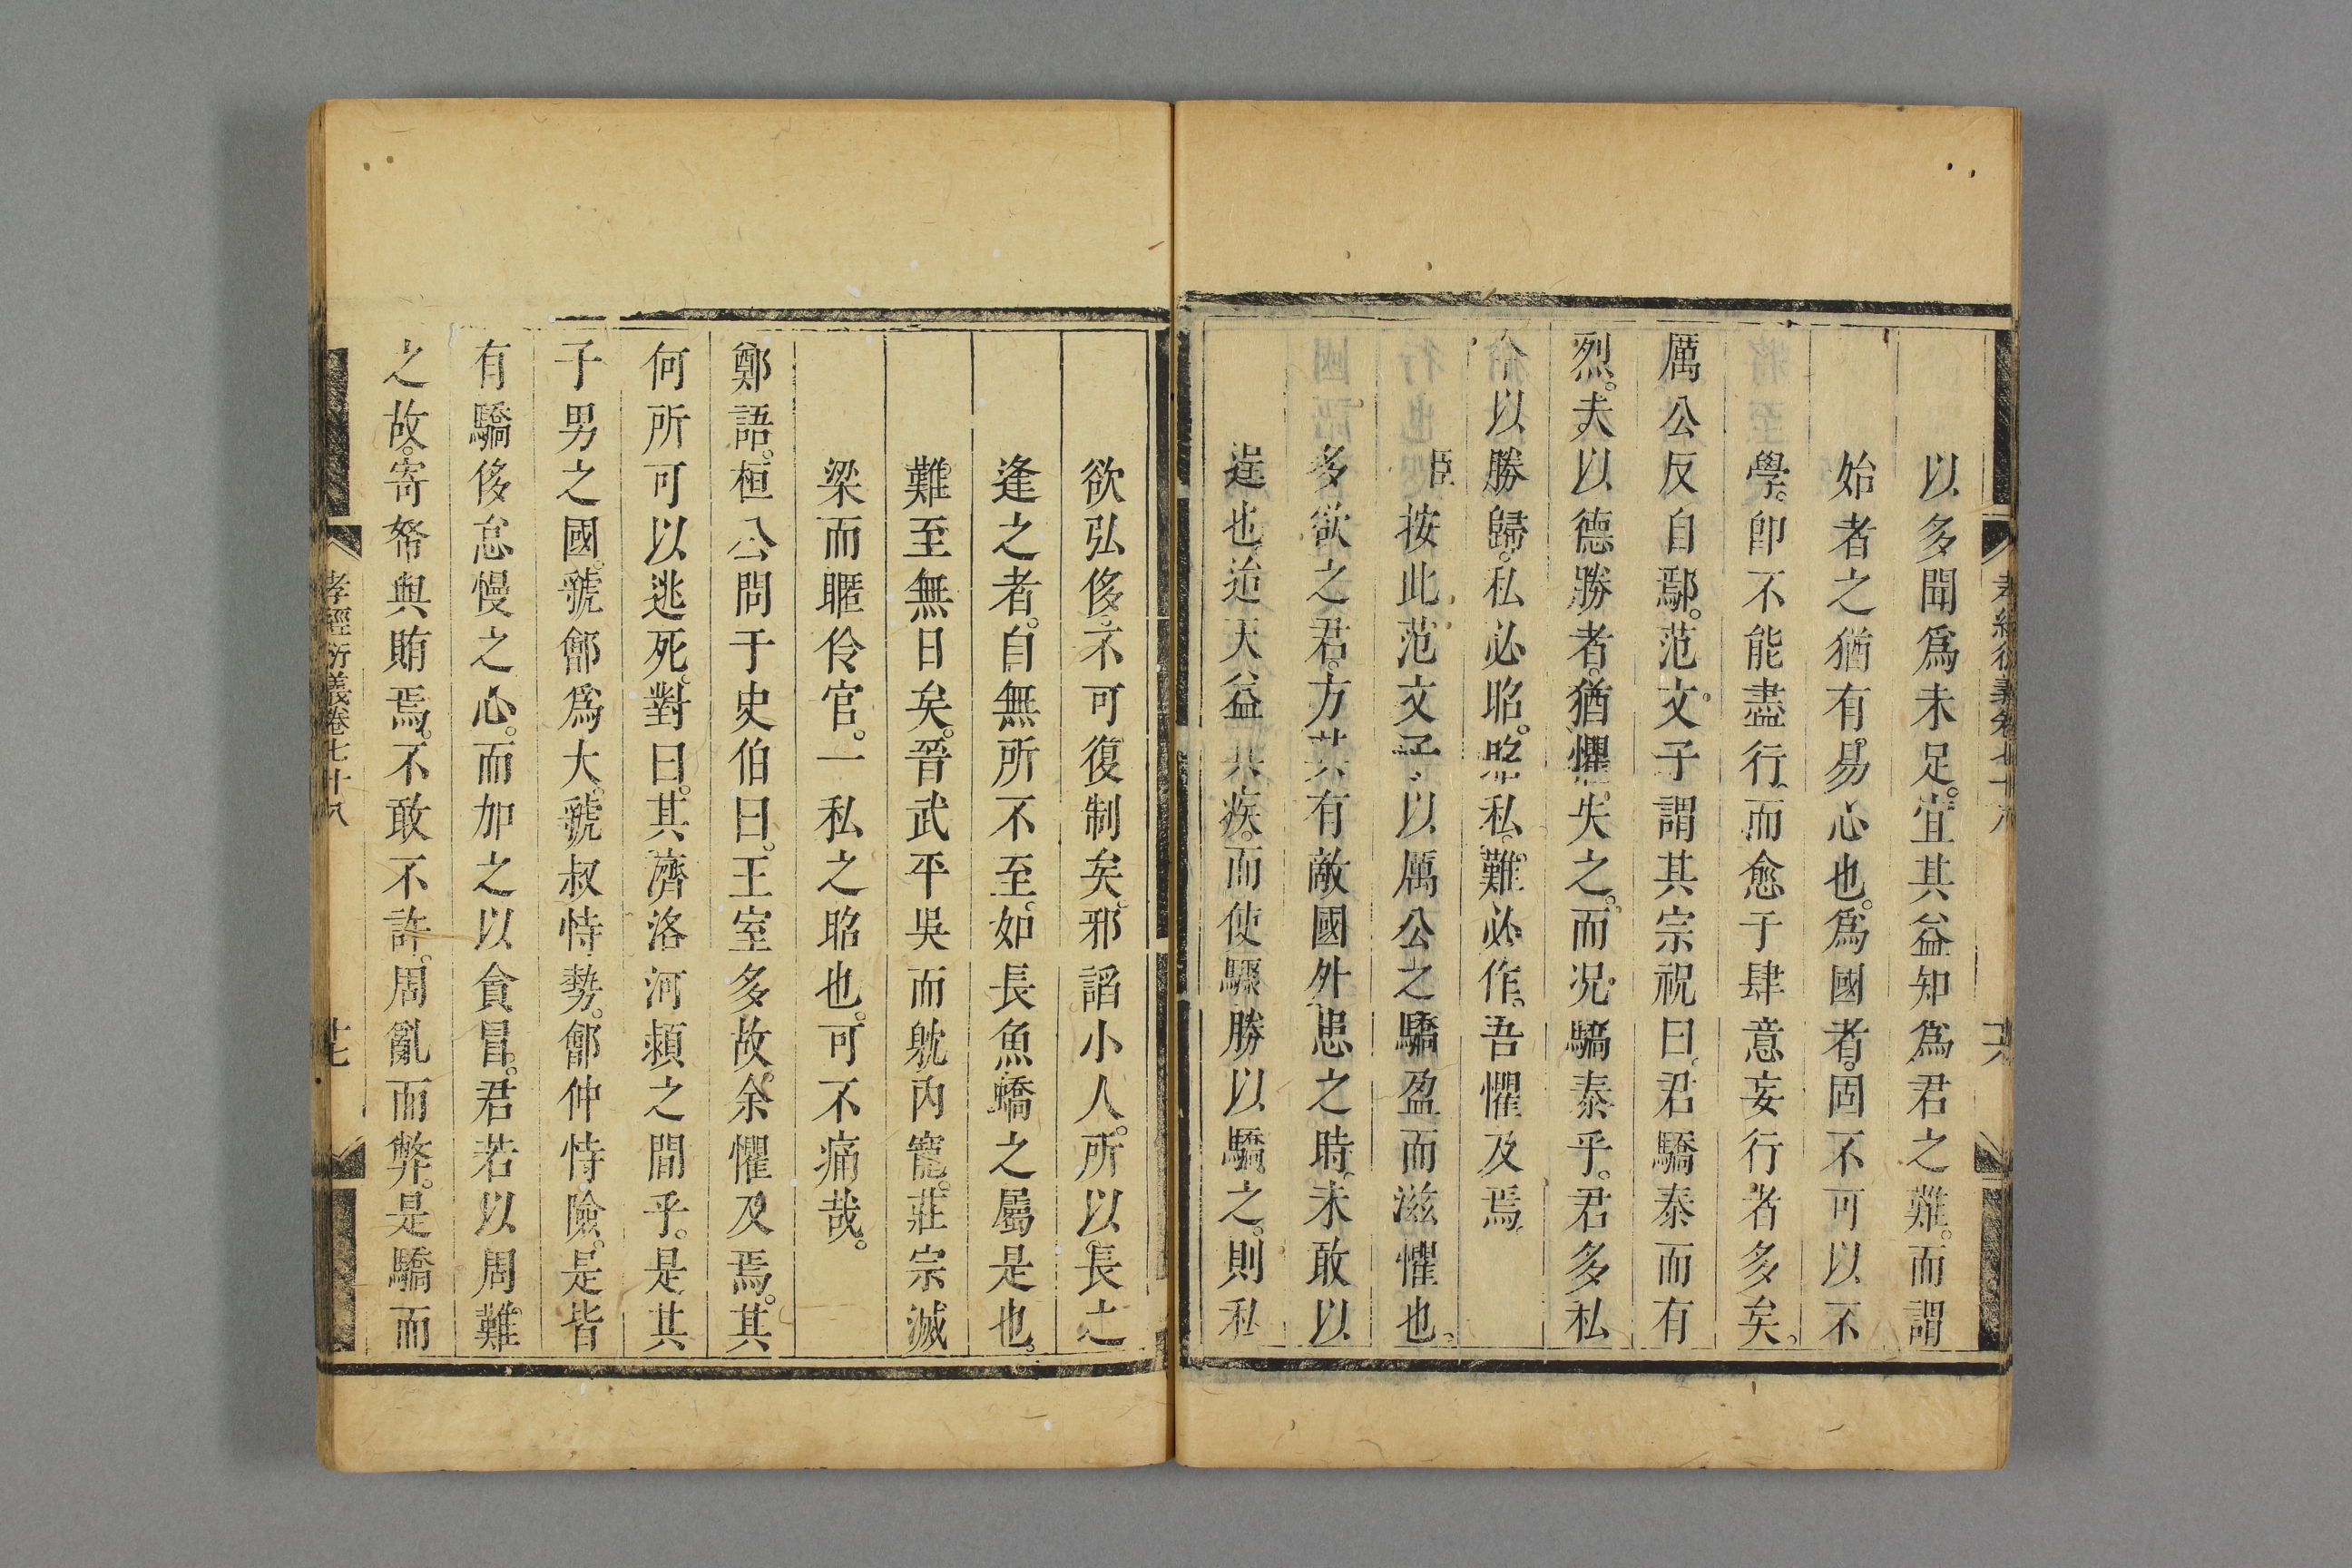 以多聞爲未足。宜其益知爲君之難。而謂
始者之猶有易心也。爲國者。固不可以不
學。卽不能盡行。而愈于肆意妄行者多矣。
厲公反自鄢。范文子謂其宗祝曰。君驕泰而有
烈。夫以德勝者。猶懼失之。而況驕泰乎。君多私
今以勝歸。私必昭。昭私。難必作。吾懼及焉。
臣按此范文子以厲公之驕盈而滋懼也。
多欲之君。方其有敵國外患之時。未敢以
逞也。迨天益其疾。而使驟勝以驕之。則私
孝經衍義卷七十八
欲弘侈。不可復制矣。邪謟小人。所以長之
逢之者。自無所不至。如長魚矯之屬是也。
難至無日矣。晉武平吳而躭內寵。莊宗滅
梁而暱伶官。一私之昭也。可不痛哉。
鄭語。桓公問于史伯曰。王室多故。余懼及焉。其
何所可以逃死。對曰。其濟洛河頴之間乎。是其
子男之國。虢鄶爲大。虢叔恃勢。鄶仲恃險。是皆
有驕侈怠慢之心。而加之以貪冒。君若以周難
之故。寄帑與賄焉。不敢不許。周亂而弊。是驕而
孝經衍義卷七十八
廿七